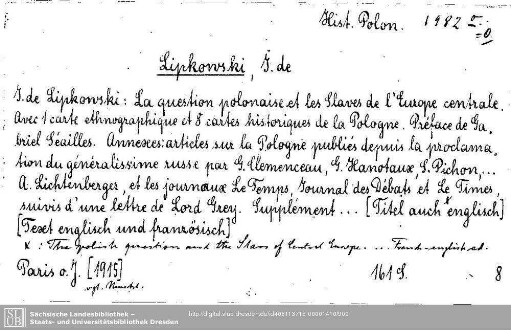 Hist. Polon. 1982
Lipkowski, J. de
J. de Lipkowski: La question polonaise et les Slaves de l'Europe centrale.
Avec 1 carte ethnographique et 8 cartes historiques de la Pologne. Préface de Ga-
briel Séailles. Annexes: articles sur la Pologne publiés depuis la proclama-
tion du généralissime russe par G. Clemenceau, G. Hanotaux, S. Pichon, ...
A. Lichtenberger, et les journaux Le Temps, Journal des Débats et Le Times,
suivis d'une lettre de Lord Grey. Supplément ... [Titel auch x englisch]
[Text englisch und französisch]
x: The polish question and the Slavs of Central Europe. ... French-english ed.
Paris o. J. [1915] 161 S. 8
vgl.
Sächsische Landesbibliothek –
Staats- und Universitätsbibliothek Dresden